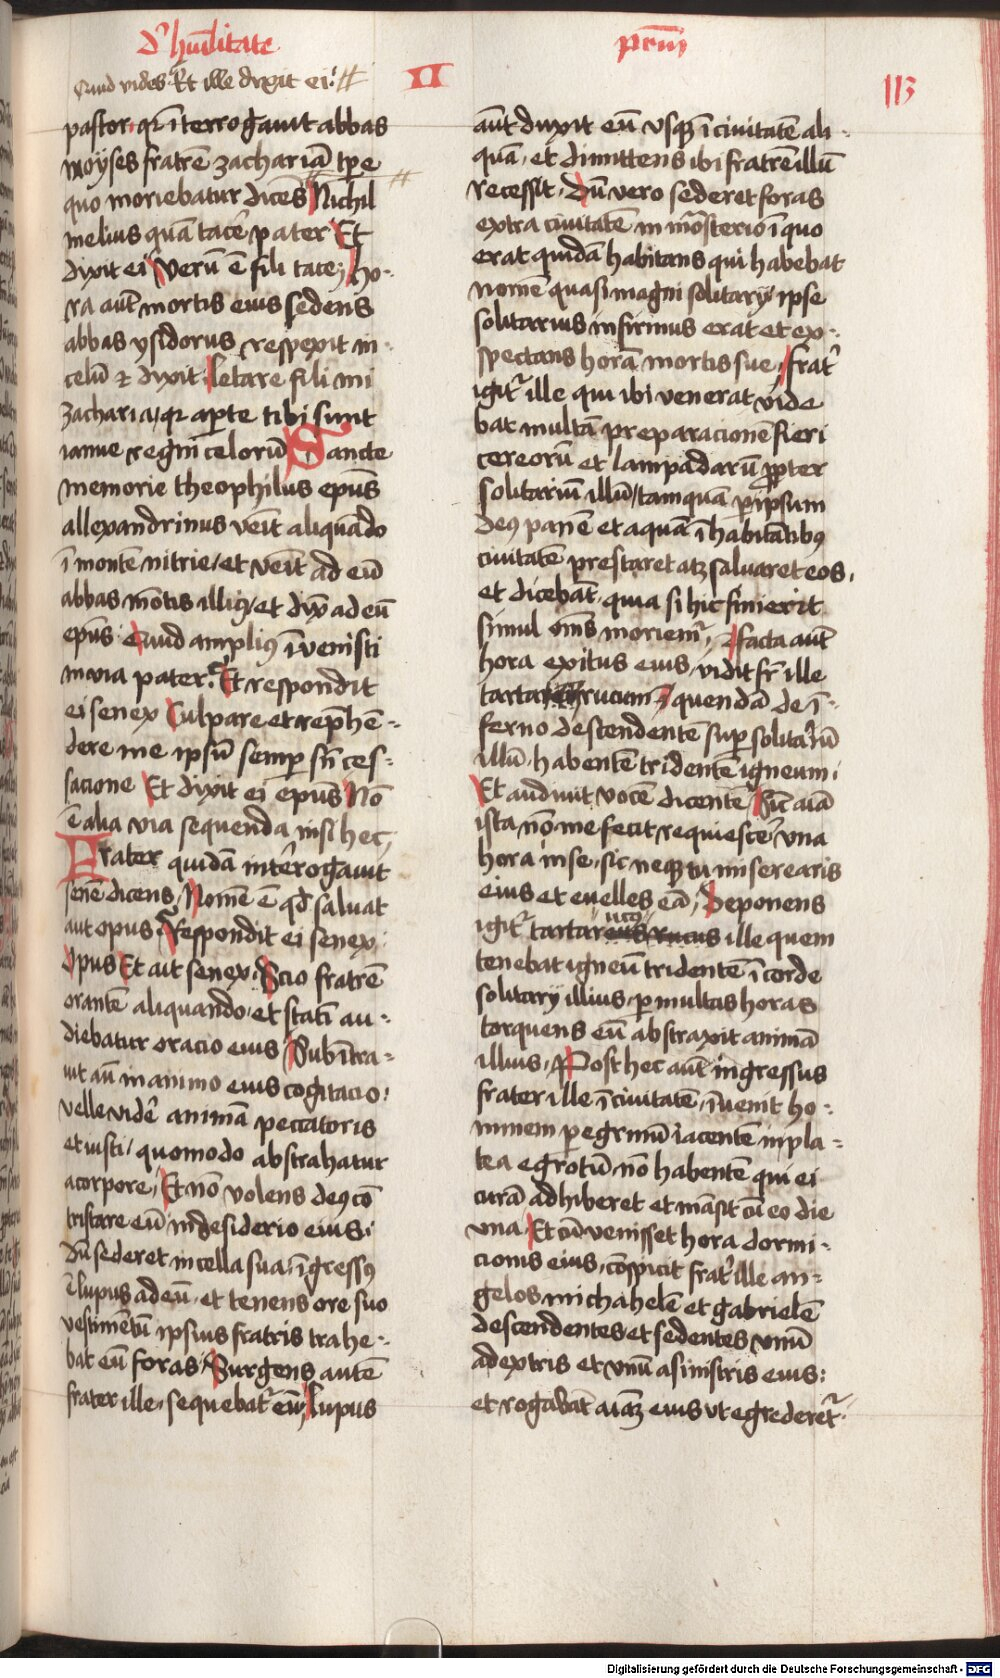 d' hu͞ilitate
p͞rm
Quid vides Et ille dixit ei
II
113
pastor qr īterrogauit abbas
moyses fratrē zachariā tp̄e
quo moriebatur dicēs Nichil
melius quā tacē pater Et
dixit ei Verū ē fili tace ho-
ra aūt mortis eius sedens
abbas ysidorus respexit in
celū ⁊ dixit letare fili mi
zacharia qr apte tibi sunt
ianue regni celorū Sancte
memorie theophilus ep̄us
allexandrinus veīt aliquādo
ī monte nitrie et veīt ad eū
abbas mōtis illiꝰ et dix̄ ad eū
ep̄us Quid ampliꝰ īvenisti
in via pater Et respondit
ei senex Culpare et rephē-
dere me ipsū semp sn̄ ces-
sacione Et dixit ei ep̄us Nō
ē alia via sequenda nisi hec
Frater quidā interogauit
senē dicens Nomē ē qd saluat
aut opus Respondit ei senex
Opus Et ait senex Scio fratrē
orantē aliquando et statī au-
diebatur oracio eius Subītra-
uit aū in animo eius cogitacio
velle vidē animā peccatoris
et iusti quomodo abstrahatur
a corpore Et nō volens deꝰ cō
tristare eū in desiderio eius
dū sederet in cella sua īgressꝰ
ē lupus ad eū et tenens ore suo
vestimētū ipsius fratris trahe-
bat eū foras Surgens autē
frater ille sequebat' eū lupus
aūt duxit eū vsqꝫ ī ciuitatē ali-
quā et dimittens ibi fratrē illū
recessit Dū vero sederet foras
extra ciuitatē in mōsterio ī quo
erat quidā habitans qui habebat
nomē quasi magni solitarij ipse
solitarius infirmus erat et ex-
spectans horā mortis sue frat'
igit' ille qui ibi venerat vide
bat multā preparacionē fieri
cereorū et lampadarū ppter
solitariū illū tamquā p ipsum
deꝰ panē et aquā ī habitātibꝰ
ciuitatē prestaret atqꝫ saluaret eos
et dicebāt quia si hic finierit
simul om̄s moriem' Facta aūt
hora exitus eius vidit fr̄ ille
tartarucum quendā de ī-
ferno descendentē sup solitariū
illū habentē tridentē igneum
Et audiuit vocē dicentē Sic aīa
ista nō me fecit requiescē vna
hora in se sic neqꝫ tu miserearis
eius et euelles eā Deponens
igit' tartarucꝰ ille quem
tenebat igneū tridentē ī corde
solitarij illius p multas horas
torquens eū abstraxit animā
illius Post hec aūt ingressus
frater ille ī ciuitatē īuenit ho-
minem pegrinū iacentē in pla-
tea egrotū nō habentē qui ei
curā adhiberet et māsit cū eo die
vna Et cū venisset hora dormi-
cionis eius cōspicit frat' ille an-
gelos michahelē et gabrielē
descendentes et sedentes vnū
a dextris et vnū a sinistris eius
et rogabāt aīaꝫ eius vt egrederet'
Digitalisierung gefördert durch die Deutsche Forschungsgemeinschaft - DFG